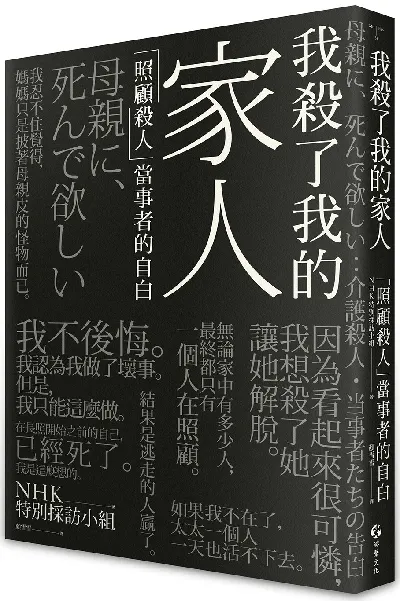 我殺了我的
家人
「照顧殺人」當事者的自白
母親に、死んで欲しい：介護殺人・当事者たちの告白
母親に、
死んで欲しい
我忍不住覺得，
媽媽只是披著母親皮的怪物而已。
因為看起來很可憐，
我想殺了她
讓她解脫。
無論家中有多少人，
最終都只有
一個人在照顧。
結果是逃走的人贏了。
我不後悔。
我認為我做了壞事。
但是，
我只能這麼做。
在長照開始之前的自己，
已經死了。
我是這麼想的。
如果我不在了，
太太一個人
也活不下去。
NHK
特別採訪小組
我殺了我的家人
「照顧殺人」當事者的自白
NHK特別採訪小組